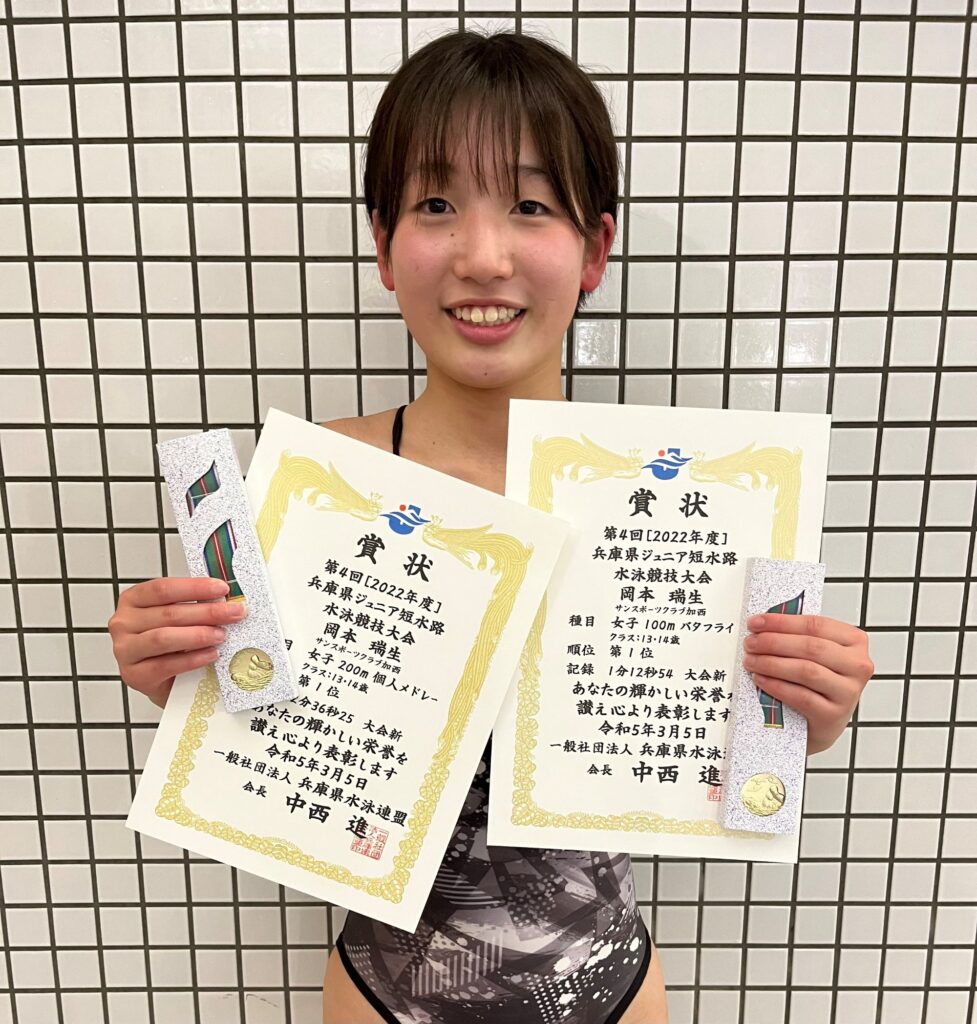 賞状
第4回[2022年度]
兵庫県ジュニア短水路
水泳競技大会
岡本 瑞生
サンスポーツクラブ加西
女子 200m 個人メドレー
クラス:13・14歳
第1位
2分36秒25 大会新
あなたの輝かしい栄誉を
讃え心より表彰します
令和5年3月5日
一般社団法人 兵庫県水泳連盟
会長 中西 進
賞状
第4回[2022年度]
兵庫県ジュニア短水路
水泳競技大会
岡本 瑞生
サンスポーツクラブ加西
種目 女子 100m バタフライ
クラス:13・14歳
順位 第1位
記録 1分12秒54 大会新
あなたの輝かしい栄誉を
讃え心より表彰します
令和5年3月5日
一般社団法人 兵庫県水泳
会長 中西 進